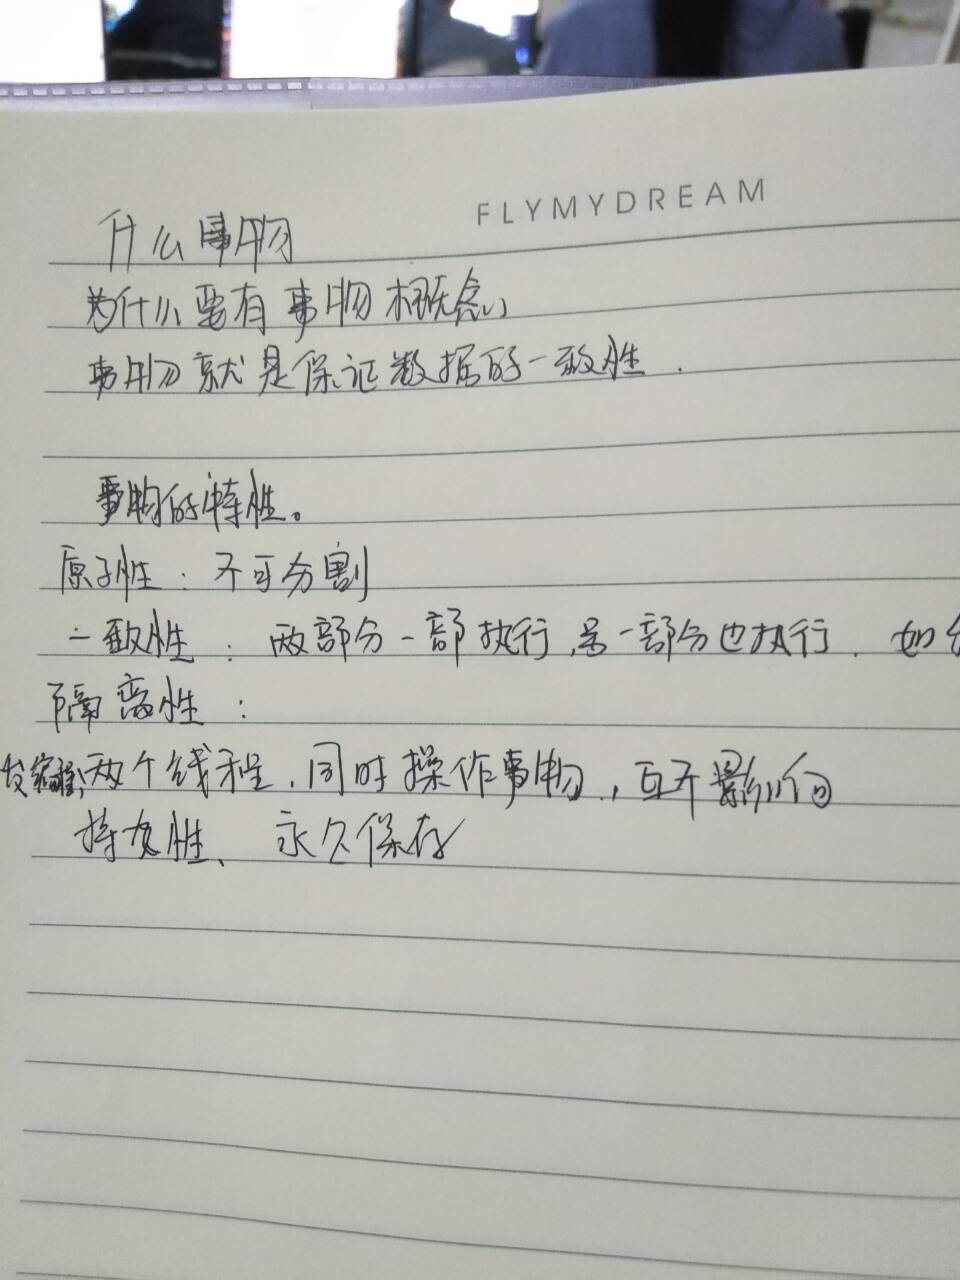 FLYMYDREAM
什么事物
为什么要有事物概念
事物就是保证数据的一致性.
事物的特性。
原子性: 不可分割
一致性: 两部分一部执行,另一部分也执行. 如
隔离性:
两个线程,同时操作事物,互不影响
持久性、永久保存